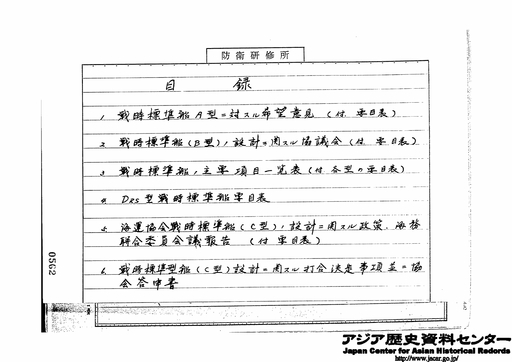 防衛研修所
目 録
1. 戦時標準船A型ニ対スル希望意見（付 要目表）
2. 戦時標準船（B型）ノ設計ニ関スル協議会（付 要目表）
3. 戦時標準船ノ主要項目一覧表（付 各型ノ要目表）
4. DRS型戦時標準船要目表
5. 海運協会戦時標準船（C型）ノ設計ニ関スル政策、海務
聯合委員会議報告 （付 要目表）
6. 戦時標準型船（C型）設計ニ関スル打合決定事項並ニ協
会答申書
0562
アジア歴史資料センター
Japan Center for Asian Historical Records
http://www.jacar.go.jp/